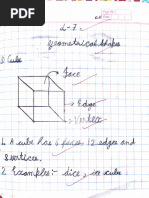 L-7
Geometrical shapes
Cube
Face
Edge
Vertex
1. A cube has 6 faces, 12 edges and
8 vertices.
2. Examples:- dice, ice cube